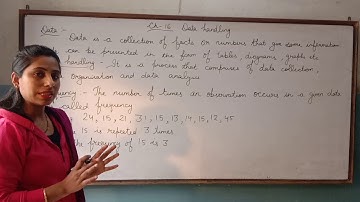 Ch-16 Data handling
Data :-
Data is a collection of facts or numbers that give some information
can be presented in the form of tables, diagrams, graphs etc
handling - It is a process that comprises of data collection,
Organisation and data analysis
The number of times an observation occurs in a given data
called frequency
24, 15, 21, 31, 15, 13, 14, 15, 12, 45
15 is repeated 3 times
the frequency of 15 is 3